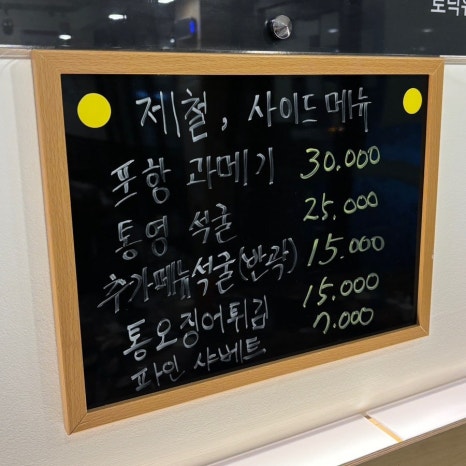 제철, 사이드메뉴
포항 과메기 30.000
통영 석굴 25.000
추가메뉴석굴(반곽) 15.000
통오징어튀김 15.000
파인 샤베트 7.000